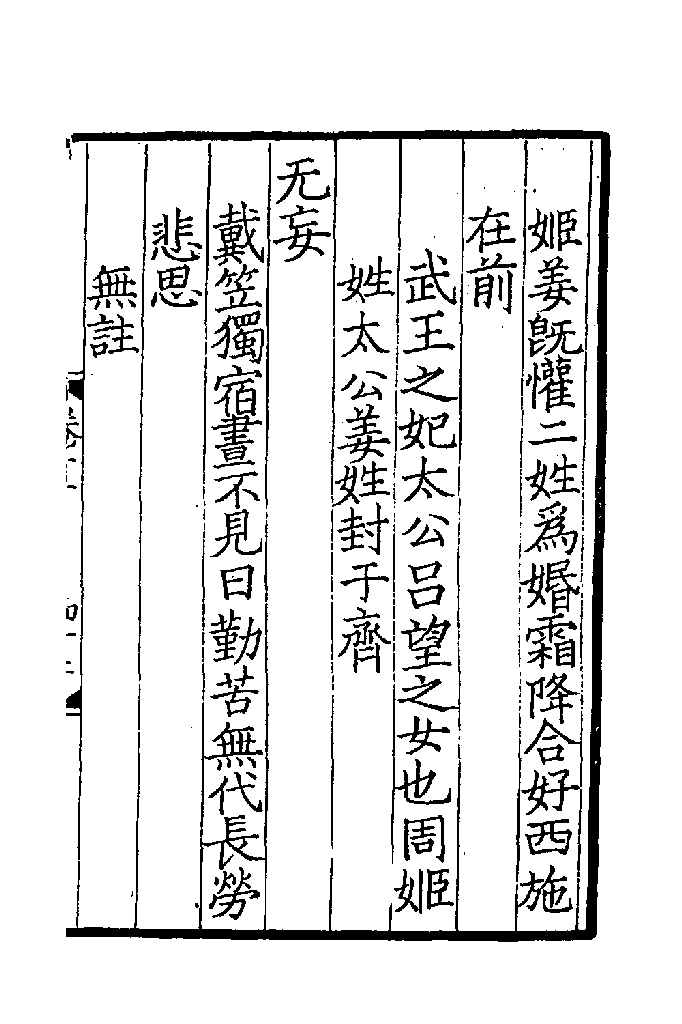 姬姜旣懽二姓爲婚霜降合好西施
在前
武王之妃太公呂望之女也周姬
姓太公姜姓封于齊
无妄
戴笠獨宿晝不見日勤苦無代長勞
悲思
無註